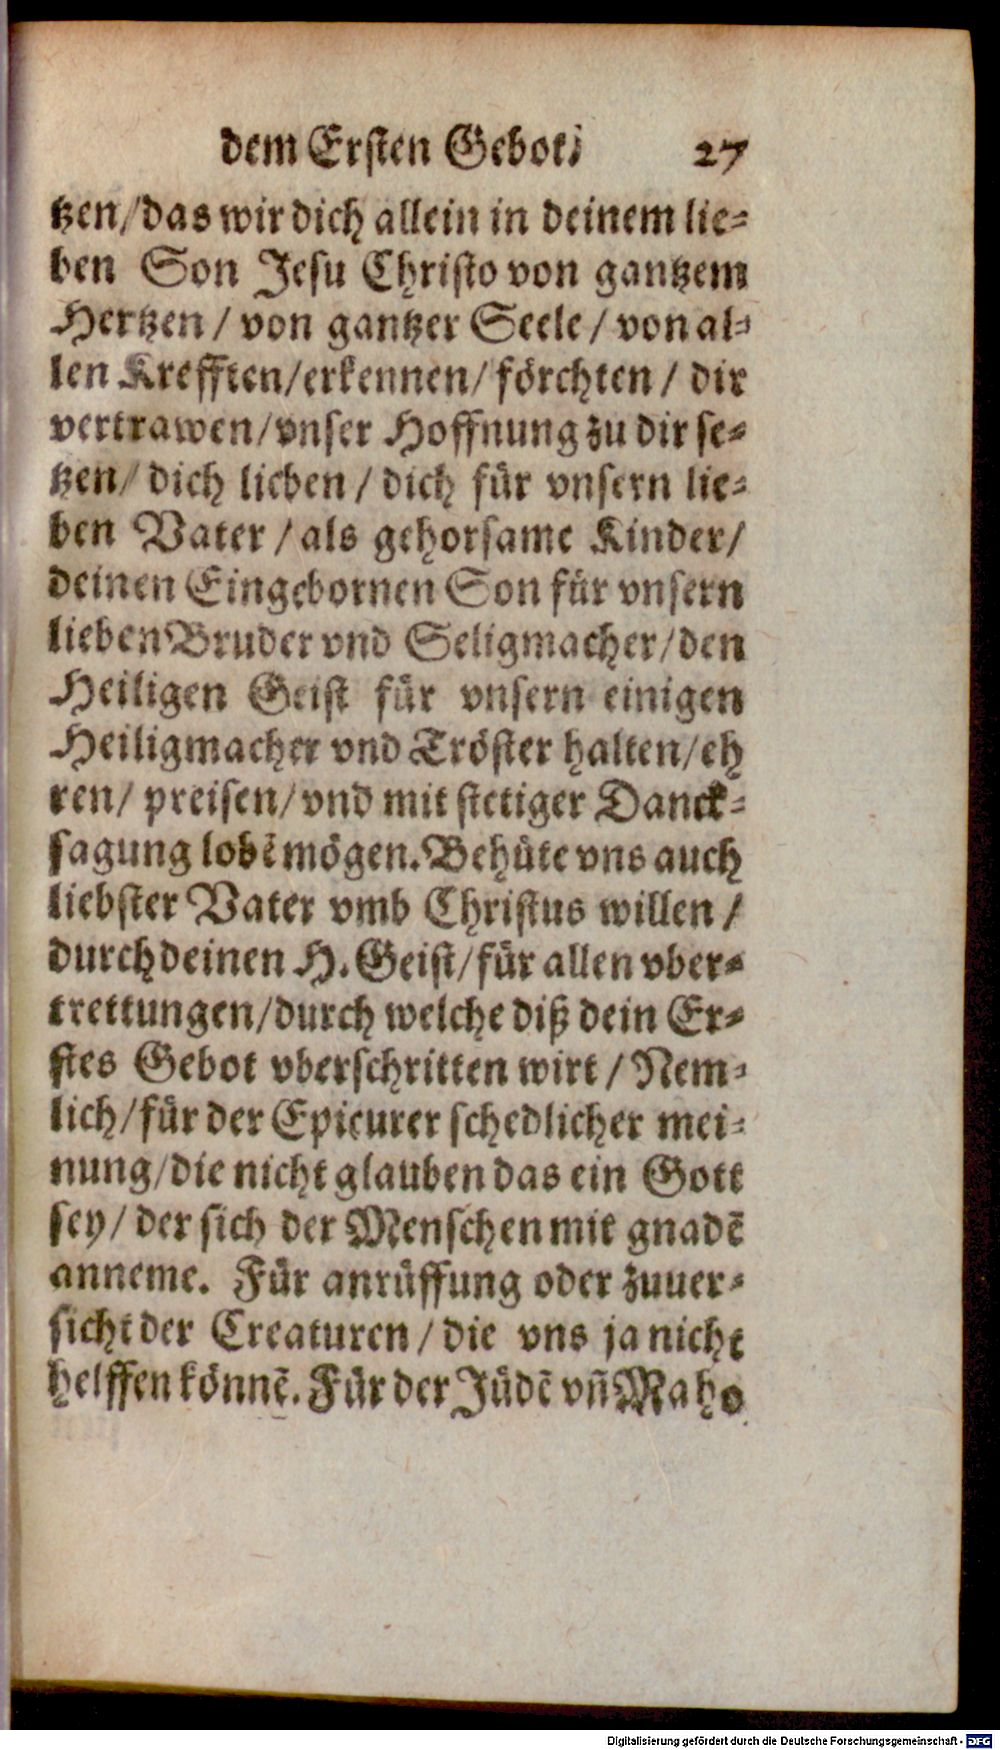 dem Ersten Gebot. 27
tzen/das wir dich allein in deinem lie-
ben Son Jesu Christo von gantzem
Hertzen / von gantzer Seele / von al-
len Krefften/erkennen/ förchten / dir
vertrawen/vnser Hoffnung zu dir se-
tzen/ dich lieben / dich für vnsern lie-
ben Vater / als gehorsame Kinder/
deinen Eingebornen Son für vnsern
lieben Bruder vnd Seligmacher/den
Heiligen Geist für vnsern einigen
Heiligmacher vnd Tröster halten/eh
ren/ preisen/vnd mit stetiger Danck-
sagung lobē mögen. Behüte vns auch
liebster Vater vmb Christus willen /
durch deinen H. Geist/für allen vber-
trettungen/durch welche diß dein Er-
stes Gebot vberschritten wirt / Nem-
lich/für der Epicurer schedlicher mei-
nung/die nicht glauben das ein Gott
sey/ der sich der Menschen mit gnadē
anneme. Für anrüffung oder zuuer-
sicht der Creaturen / die vns ja nicht
helffen könnē. Für der Jüdē vñ Maho
Digitalisierung gefördert durch die Deutsche Forschungsgemeinschaft - DFG